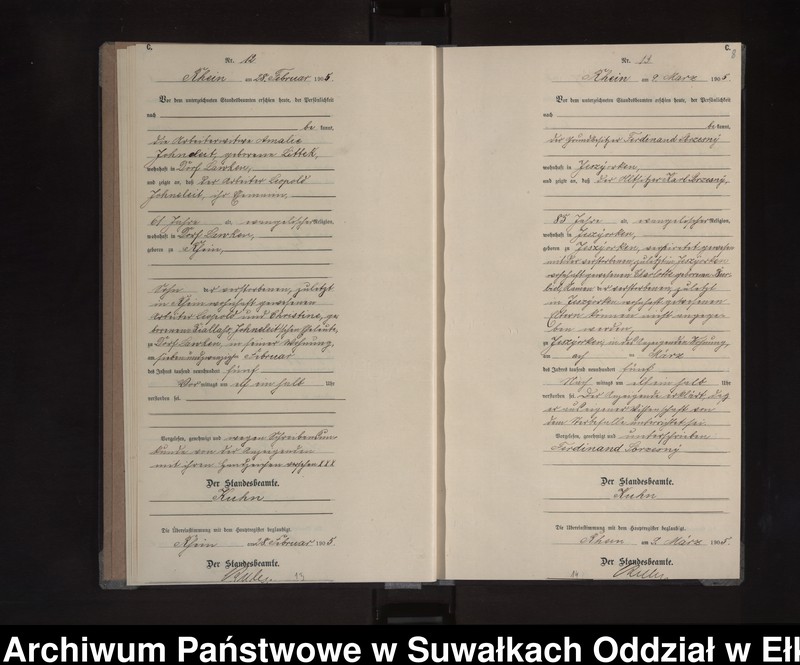 C.
Nr. 12
Rhein am 28. Februar 1905.
Vor dem unterzeichneten Standesbeamten erschien heute, der Persönlichkeit
nach
be kannt,
die Arbeiterwitwe Amalie
Johnsleit, geborene Littek,
wohnhaft in Dorf Lawken,
und zeigte an, daß der Arbeiter Leopold
Johnsleit, ihr Ehemann,
61 Jahre a evangelischer Religion,
wohnhaft in Dorf Lawken,
geboren zu Rhein,
Sohn der verstorbenen, zuletzt
in Rhein wohnhaft gewesenen
Arbeiter Leopold und Christine, ge
borenen Johnsleit'schen Eheleute,
zu Dorf Lawken, in seiner Wohnung,
am siebenundzwanzigsten Februar
des Jahres tausend neunhundert fünf
Vor mittags um elf ein halb Uhr
verstorben sei.
Vorgelesen, genehmigt und wegen Schreibensun-
kunde von der Anzeigenden
mit ihren Handzeichen versehen XXX
Der Standesbeamte.
Kuhn
Die Übereinstimmung mit dem Hauptregister beglaubigt.
Rhein am 28. Februar 1905
Der Standesbeamte.
C.
8
Nr. 13
Rhein am 9. März 1905.
Vor dem unterzeichneten Standesbeamten erschien heute, der Persönlichkeit
nach
be kannt,
der Grundbesitzer Ferdinand
wohnhaft in Jesziorken,
und zeigte an, daß der Altsitzer Karl
85 Jahre a evangelischer Religion,
wohnhaft in Jesziorken,
geboren zu Jesziorken, verheiratet gewesen
mit der verstorbenen, zuletzt in Jesziorken
wohnhaft gewesenen Charlotte geborenen
Namen der verstorbenen, zuletzt
in wohnhaft gewesenen
Eltern können nicht angege
ben werden,
zu Jesziorken, in des Anzeigenden Wohnung,
am acht März
des Jahres tausend neunhundert fünf
Nach mittags um elf ein halb Uhr
verstorben sei. Der Anzeigende erklärt, daß
er aus eigener Wissenschaft von
dem Sterbefalle unterrichtet sei.
Vorgelesen, genehmigt und unterschrieben
Ferdinand
Der Standesbeamte.
Kuhn
Die Übereinstimmung mit dem Hauptregister beglaubigt.
Rhein am 9. März 1905.
Der Standesbeamte.
Archiwum Państwowe w Suwałkach Oddział w Ełk